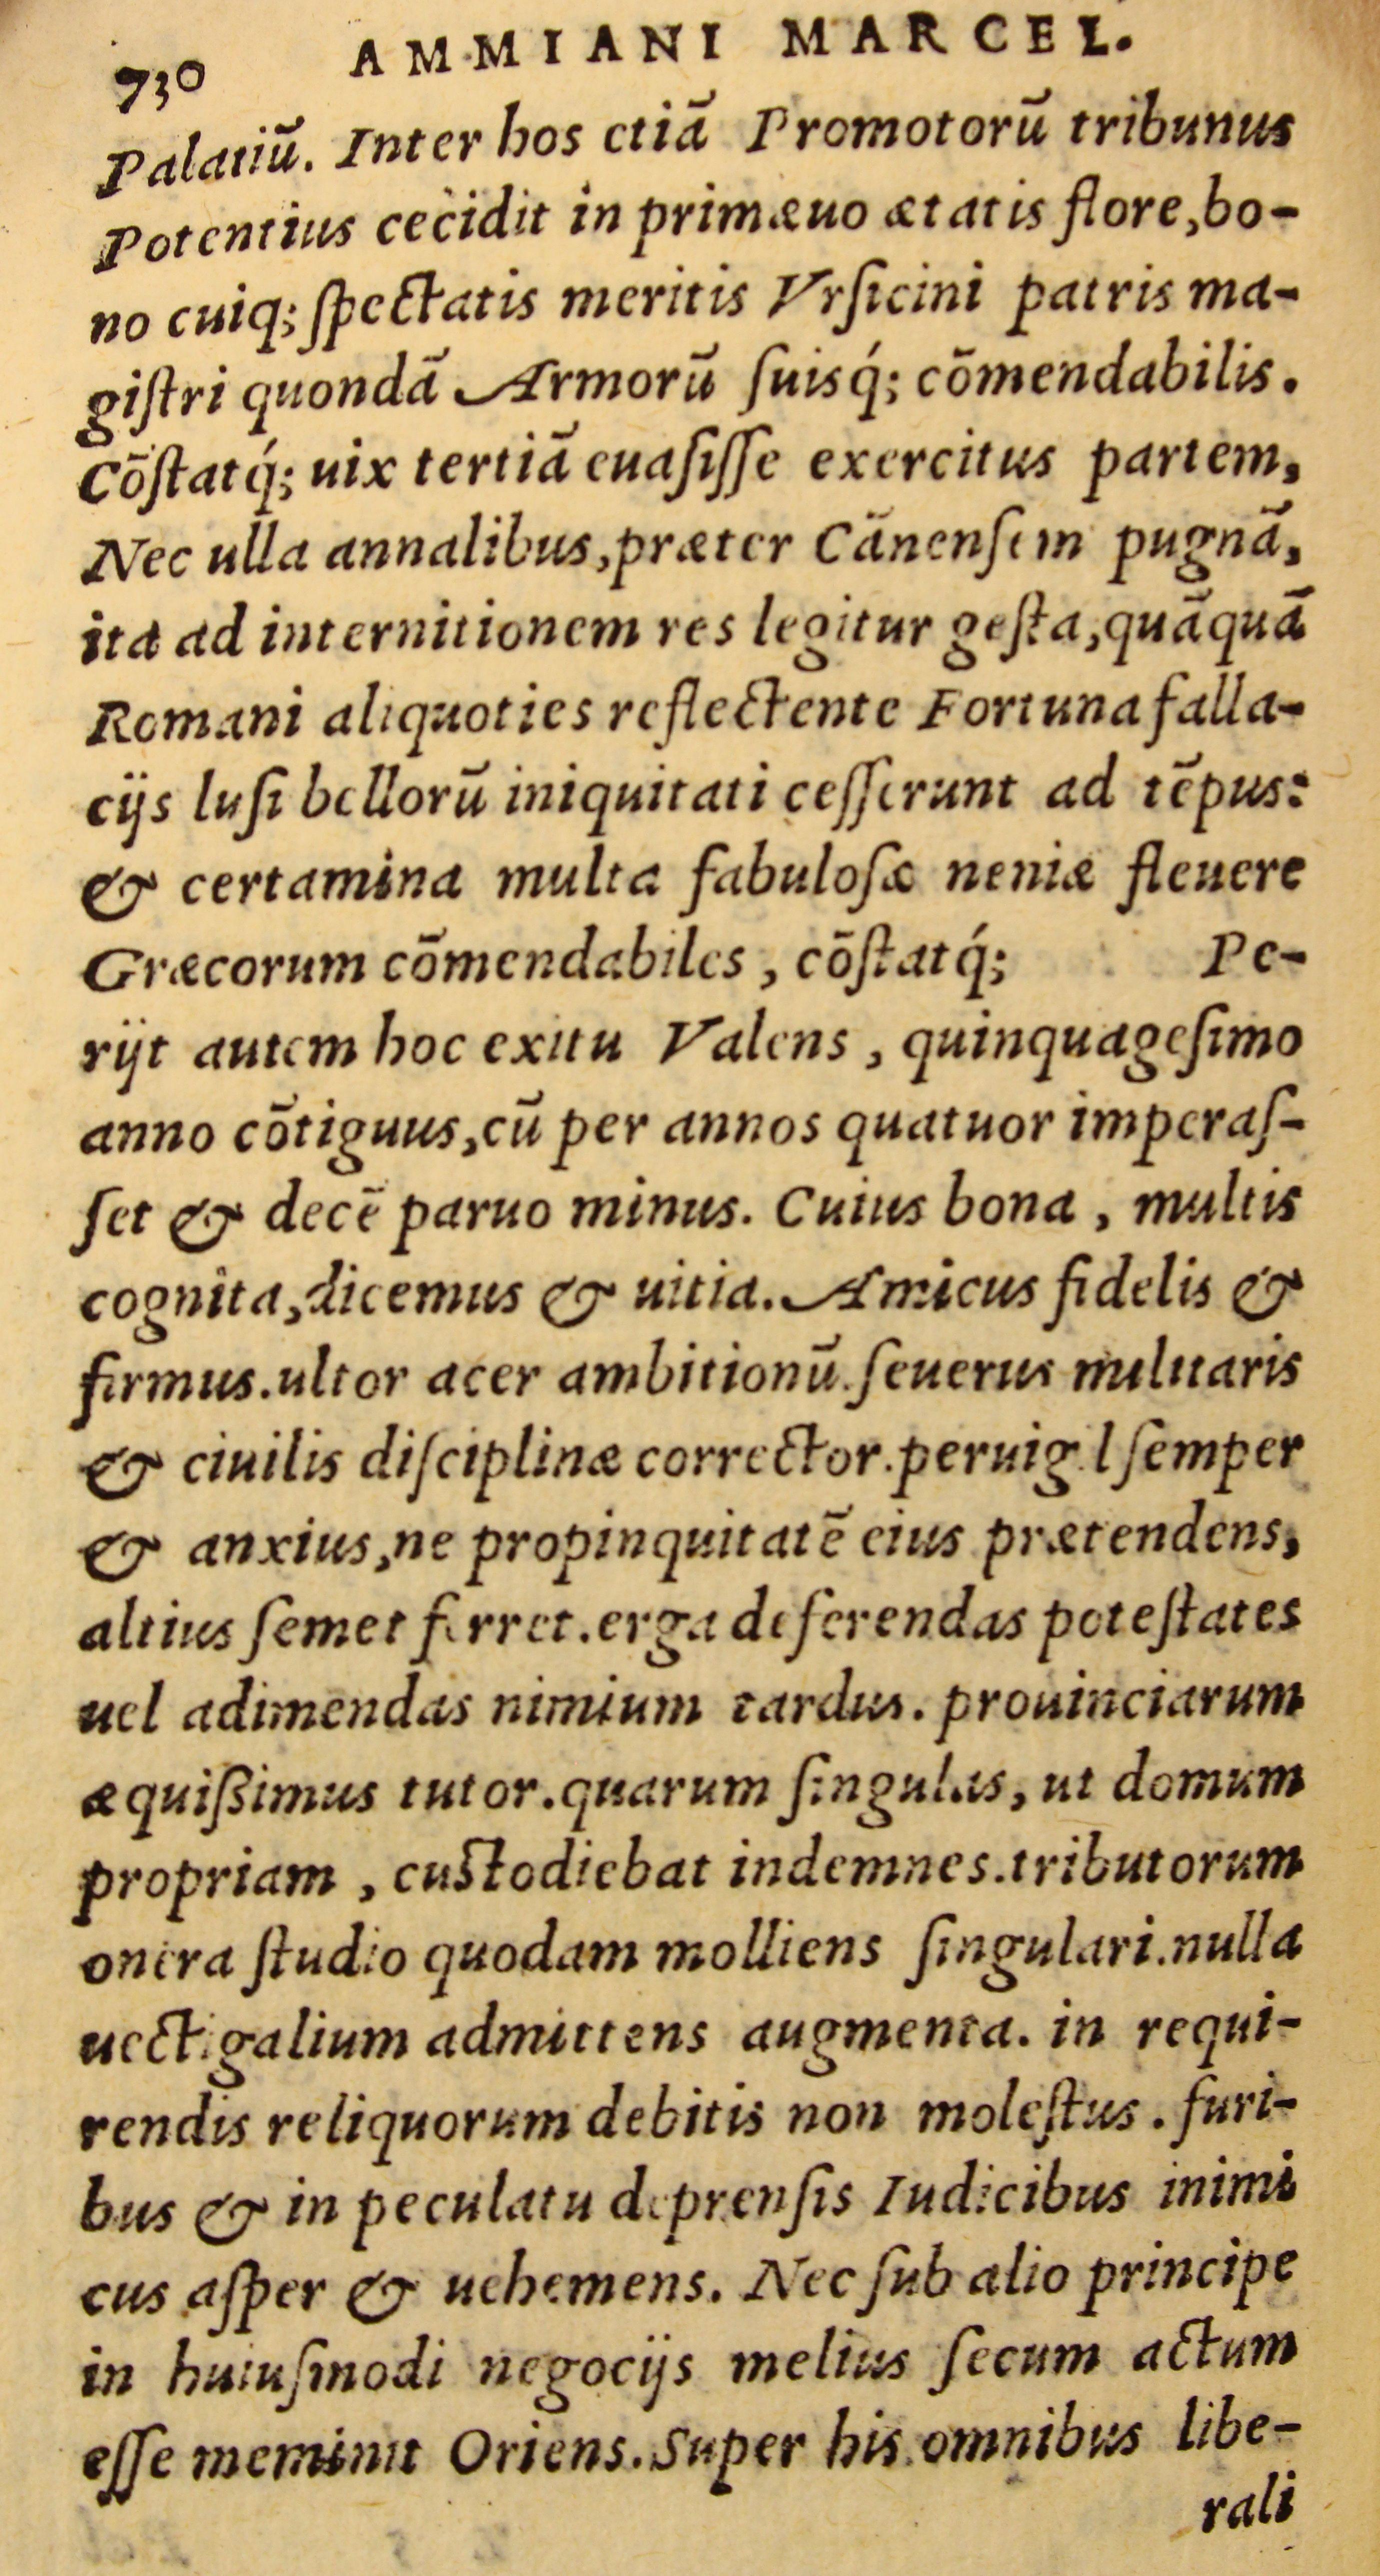 730 AMMIANI MARCEL.
Palatiū. Inter hos etiā Promotorū tribunus
Potentius cecidit in primæuo ætatis flore,bo-
no cuiq; ſpectatis meritis Vrſicini patris ma-
giſtri quondā Armorū ſuisq́; cōmendabilis.
Cōſtatq́; uix tertiā euaſiſſe exercitus partem,
Nec ulla annalibus,præter Cānenſem pugnā,
ita ad internitionem res legitur geſta,quāquā
Romani aliquoties reflectente Fortuna falla-
cijs luſi bellorū iniquitati ceſſerunt ad tēpus:
& certamina multa fabuloſæ neniæ fleuere
Græcorum cōmendabiles, cōſtatq́; Pe-
rijt autem hoc exitu Valens, quinquageſimo
anno cōtiguus,cū per annos quatuor imperaſ-
ſet & decē paruo minus. Cuius bona, multis
cognita,dicemus & uitia. Amicus fidelis &
firmus.ultor acer ambitionū.ſeuerus militaris
& ciuilis diſciplinæ corrector.peruigil ſemper
& anxius,ne propinquitatē eius prætendens,
altius ſemet ferret.erga deferendas poteſtates
uel adimendas nimium tardus. prouinciarum
æquißimus tutor.quarum ſingulas, ut domum
propriam, cuſtodiebat indemnes.tributorum
onera ſtudio quodam molliens ſingulari.nulla
uectigalium admittens augmenta. in requi-
rendis reliquorum debitis non moleſtus. furi-
bus & in peculatu deprenſis Iudicibus inimi
cus aſper & uehemens. Nec ſub alio principe
in huiuſmodi negocijs melius ſecum actum
eſſe meminit Oriens. Super his omnibus libe-
rali